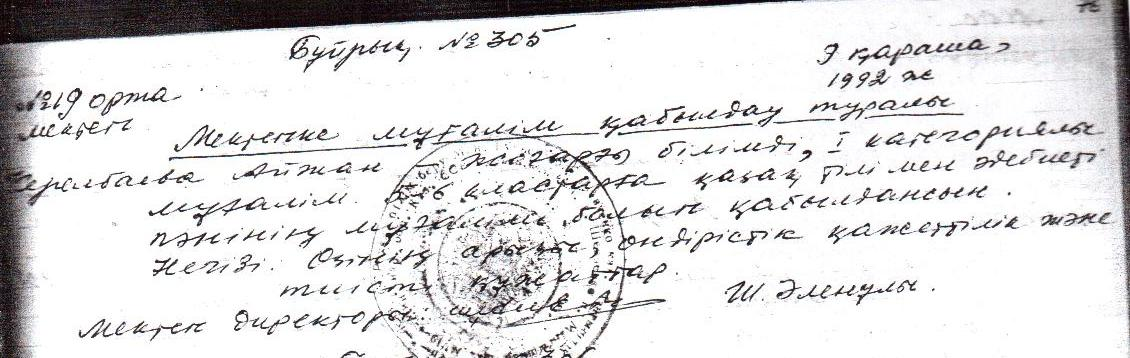 Бұйрық. №305
9 қараша,
1992 ж
№19 орта
мектеп
Мектепке мұғалім қабылдау туралы
Айжан жоғарғы білімді, I категориялы
мұғалім. 5-6 кластарға қазақ тілі мен әдебиеті
пәнінің мұғалімі болып қабылдансын.
Негізі. Оқиның арызы, өндірістік қажеттілік және
тиісті құжаттар.
Мектеп директоры: Ш. Әленұлы.